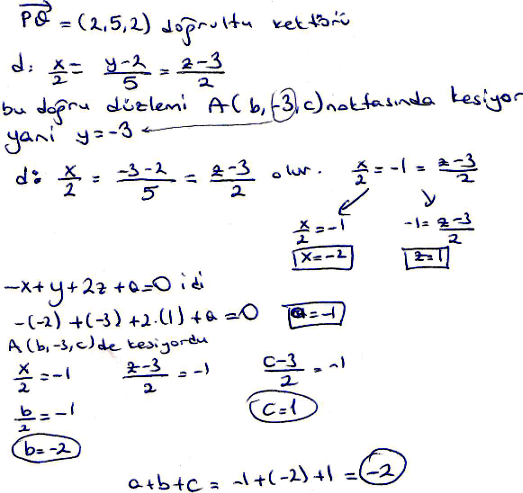 PQ = (2,5,2) doğrultu vektörü
d: x/2 = y-2/5 = z-3/2
bu doğru düzlemi A(b,-3,c) noktasında kesiyor
yani y=-3
d: x/2 = -3-2/5 = z-3/2 olur. x/2 = -1 = z-3/2
x/2 = -1 -1 = z-3/2
x=-2 z=1
-x+y+2z+a=0 idi
-(-2)+(-3)+2.(1)+a=0 a=-1
A(b,-3,c) de kesiyordu
x/2 = -1 z-3/2 = -1 c-3/2 = -1
b/2 = -1 c=1
b=-2
a+b+c = -1+(-2)+1 = -2